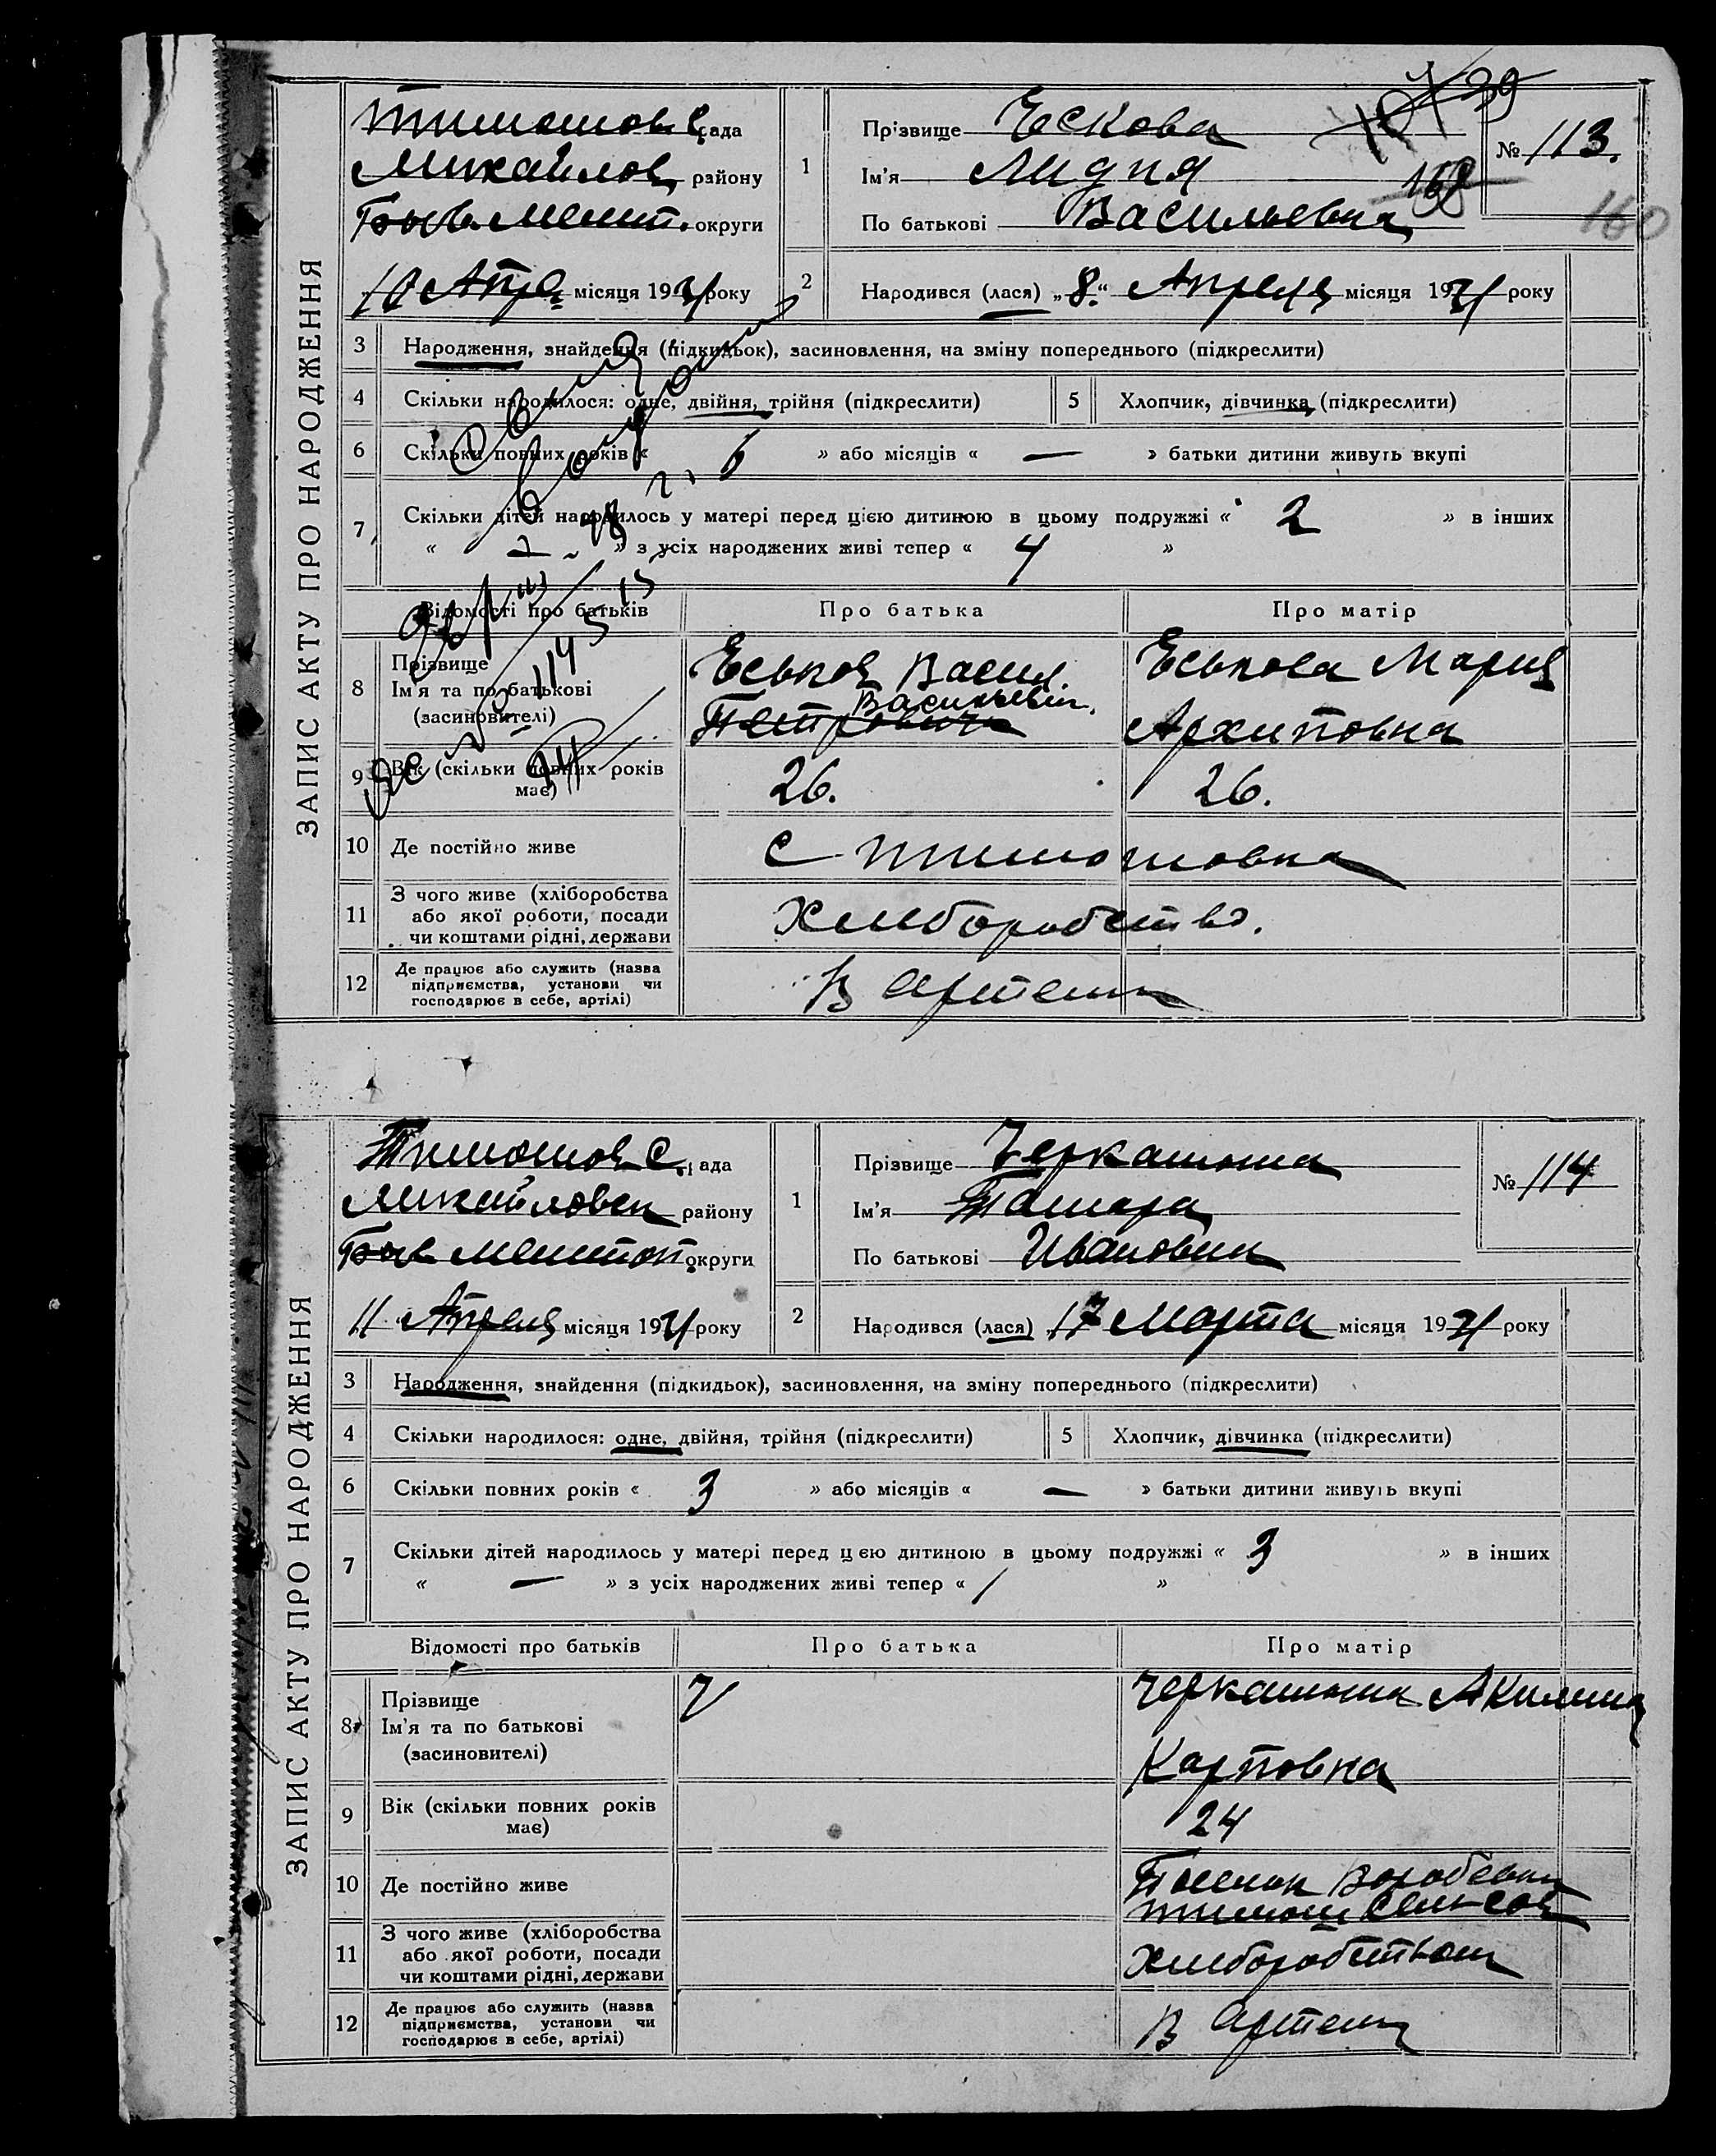 ЗАПИС АКТУ ПРО НАРОДЖЕННЯ
Тимошов С. рада
Михайлов району
Быв. Мелит. округи
10 Апре місяця 1931 року
1 Прізвище Ескова
Ім'я Лидия
По батькові Васильевна
№ 113.
39
160
2 Народився (лася) „8.“ Апреля місяця 1931 року
3 Народження, знайдення (підкидьок), засиновлення, на зміну попереднього (підкреслити)
4 Скільки народилося: одне, двійня, трійня (підкреслити) 5 Хлопчик, дівчинка (підкреслити)
6 Скільки повних років « 6 » або місяців « — » батьки дитини живуть вкупі
7 Скільки дітей народилось у матері перед цією дитиною в цьому подружжі « 2 » в інших
« » з усіх народжених живі тепер « 4 »
Відомості про батьків Про батька Про матір
8 Прізвище
Ім'я та по батькові
(засиновителі)
Еськов Васил.
Васильевич.
Петрович
Еськова Мария
Архиповна
9 Вік (скільки повних років має) 26. 26.
10 Де постійно живе С Тимошовка
11 З чого живе (хліборобства
або якої роботи, посади
чи коштами рідні, держави
Хлеборобство.
12 Де працює або служить (назва
підприємства, установи чи
господарює в себе, артілі)
В артели
ЗАПИС АКТУ ПРО НАРОДЖЕННЯ
Тимошов С. рада
Михайловск району
Быв Мелитоп округи
11 Апреля місяця 1931 року
1 Прізвище Черкашина
Ім'я Тамара
По батькові Ивановна
№ 114
2 Народився (лася) 17 Марта місяця 1931 року
3 Народження, знайдення (підкидьок), засиновлення, на зміну попереднього (підкреслити)
4 Скільки народилося: одне, двійня, трійня (підкреслити) 5 Хлопчик, дівчинка (підкреслити)
6 Скільки повних років « 3 » або місяців « — » батьки дитини живуть вкупі
7 Скільки дітей народилось у матері перед цією дитиною в цьому подружжі « 3 » в інших
« — » з усіх народжених живі тепер « 1 »
Відомості про батьків Про батька Про матір
8 Прізвище
Ім'я та по батькові
(засиновителі)
Черкашина Акилина
Карповна
9 Вік (скільки повних років має) 24
10 Де постійно живе Поселок Воробевка
Тимош сельсов
11 З чого живе (хліборобства
або якої роботи, посади
чи коштами рідні, держави
Хлеборобством
12 Де працює або служить (назва
підприємства, установи чи
господарює в себе, артілі)
В Артели